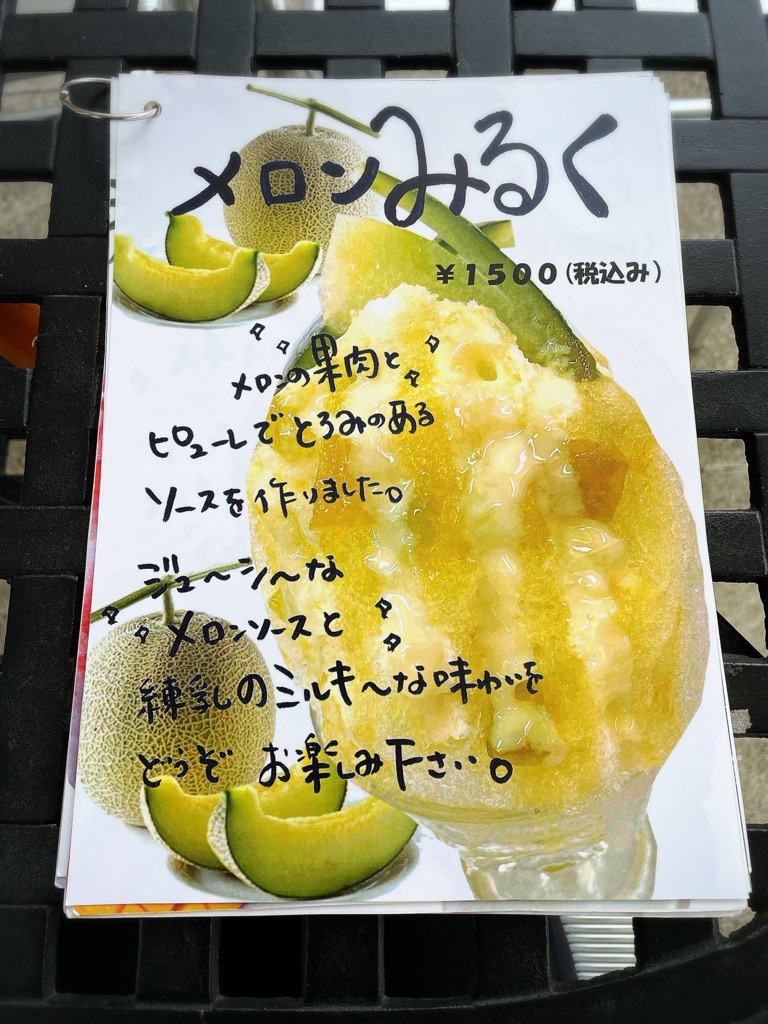 メロンみるく
¥1500(税込み)
メロンの果肉と
ピューレでとろみのある
ソースを作りました。
ジュ〜シ〜な
メロンソースと
練乳のミルキ〜な味わいを
どうぞ お楽しみ下さい。